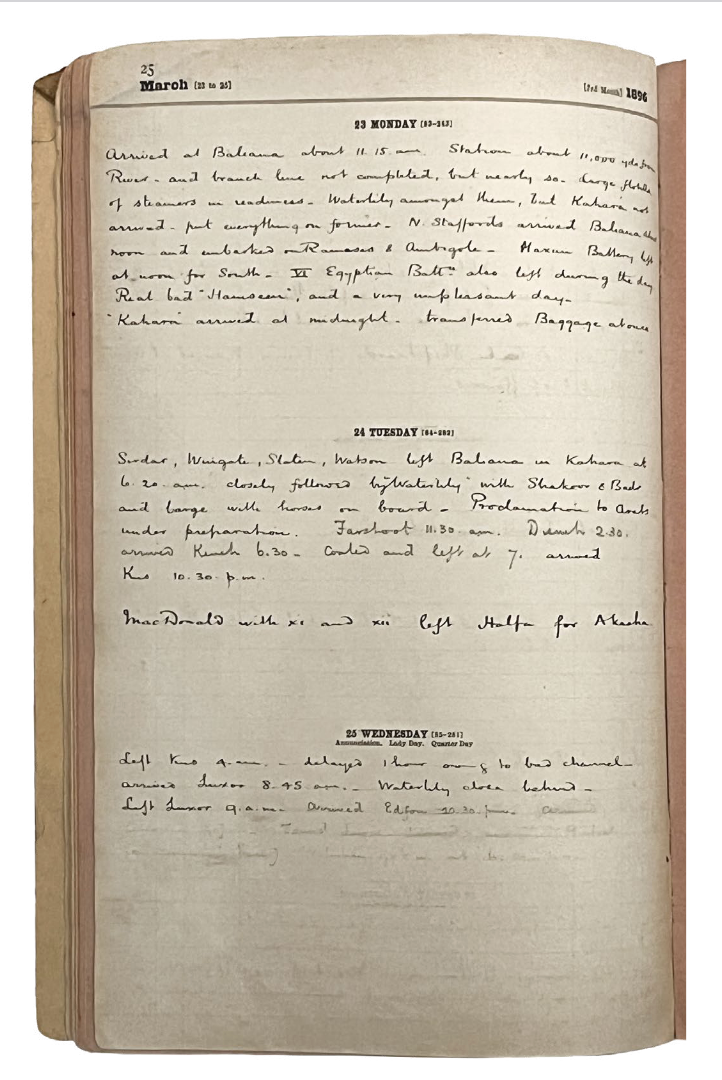 25
March [23 to 25]
[3rd Month] 1896
23 MONDAY [83-283]
Arrived at Baliana about 11.15 am. Station about 11,000 yds from
River - and branch line not completed, but nearly so - Large flotilla
of steamers in readiness - Waterlily amongst them, but Kahara not
arrived - put everything on former - N. Staffords arrived Baliana about
noon and embarked on Rameses & Ambigole - Maxim Battery left
at noon for South - VI Egyptian Battn also left during the day
Real bad "Hamseen", and a very unpleasant day -
"Kahara" arrived at midnight - transferred Baggage at once
24 TUESDAY [84-282]
Sirdar, Wingate, Slatin, Watson left Baliana in Kahara at
6.20 a.m. closely followed by "Waterlily" with Shakoor & Bade
and barge with horses on board - Proclamation to Arabs
under preparation. Farshoot 11.30 am. Disneh 2.30.
arrived Keneh 6.30 - Coaled and left at 7. arrived
Kus 10.30 p.m.
MacDonald with xi and xii left Halfa for Akasha
25 WEDNESDAY [85-281]
Annunciation. Lady Day. Quarter Day
Left Kus 4 am. - delayed 1 hour owing to bad channel -
arrived Luxor 8.45 am. - Waterlily close behind -
Left Luxor 9 a.m. Arrived Edfou 10.30 pm.